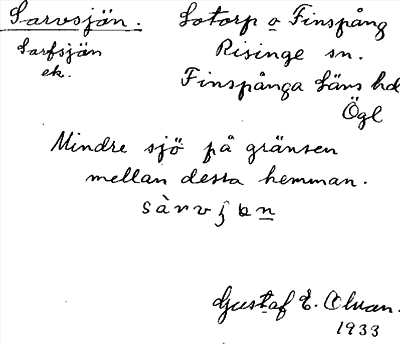 Sarvsjön.
Sarfsjön
ek.
Lotorp o Finspång
Risinge sn.
Finspånga Läns hd
Ögl
Mindre sjö på gränsen
mellan dessa hemman.
Gustaf E.
1933